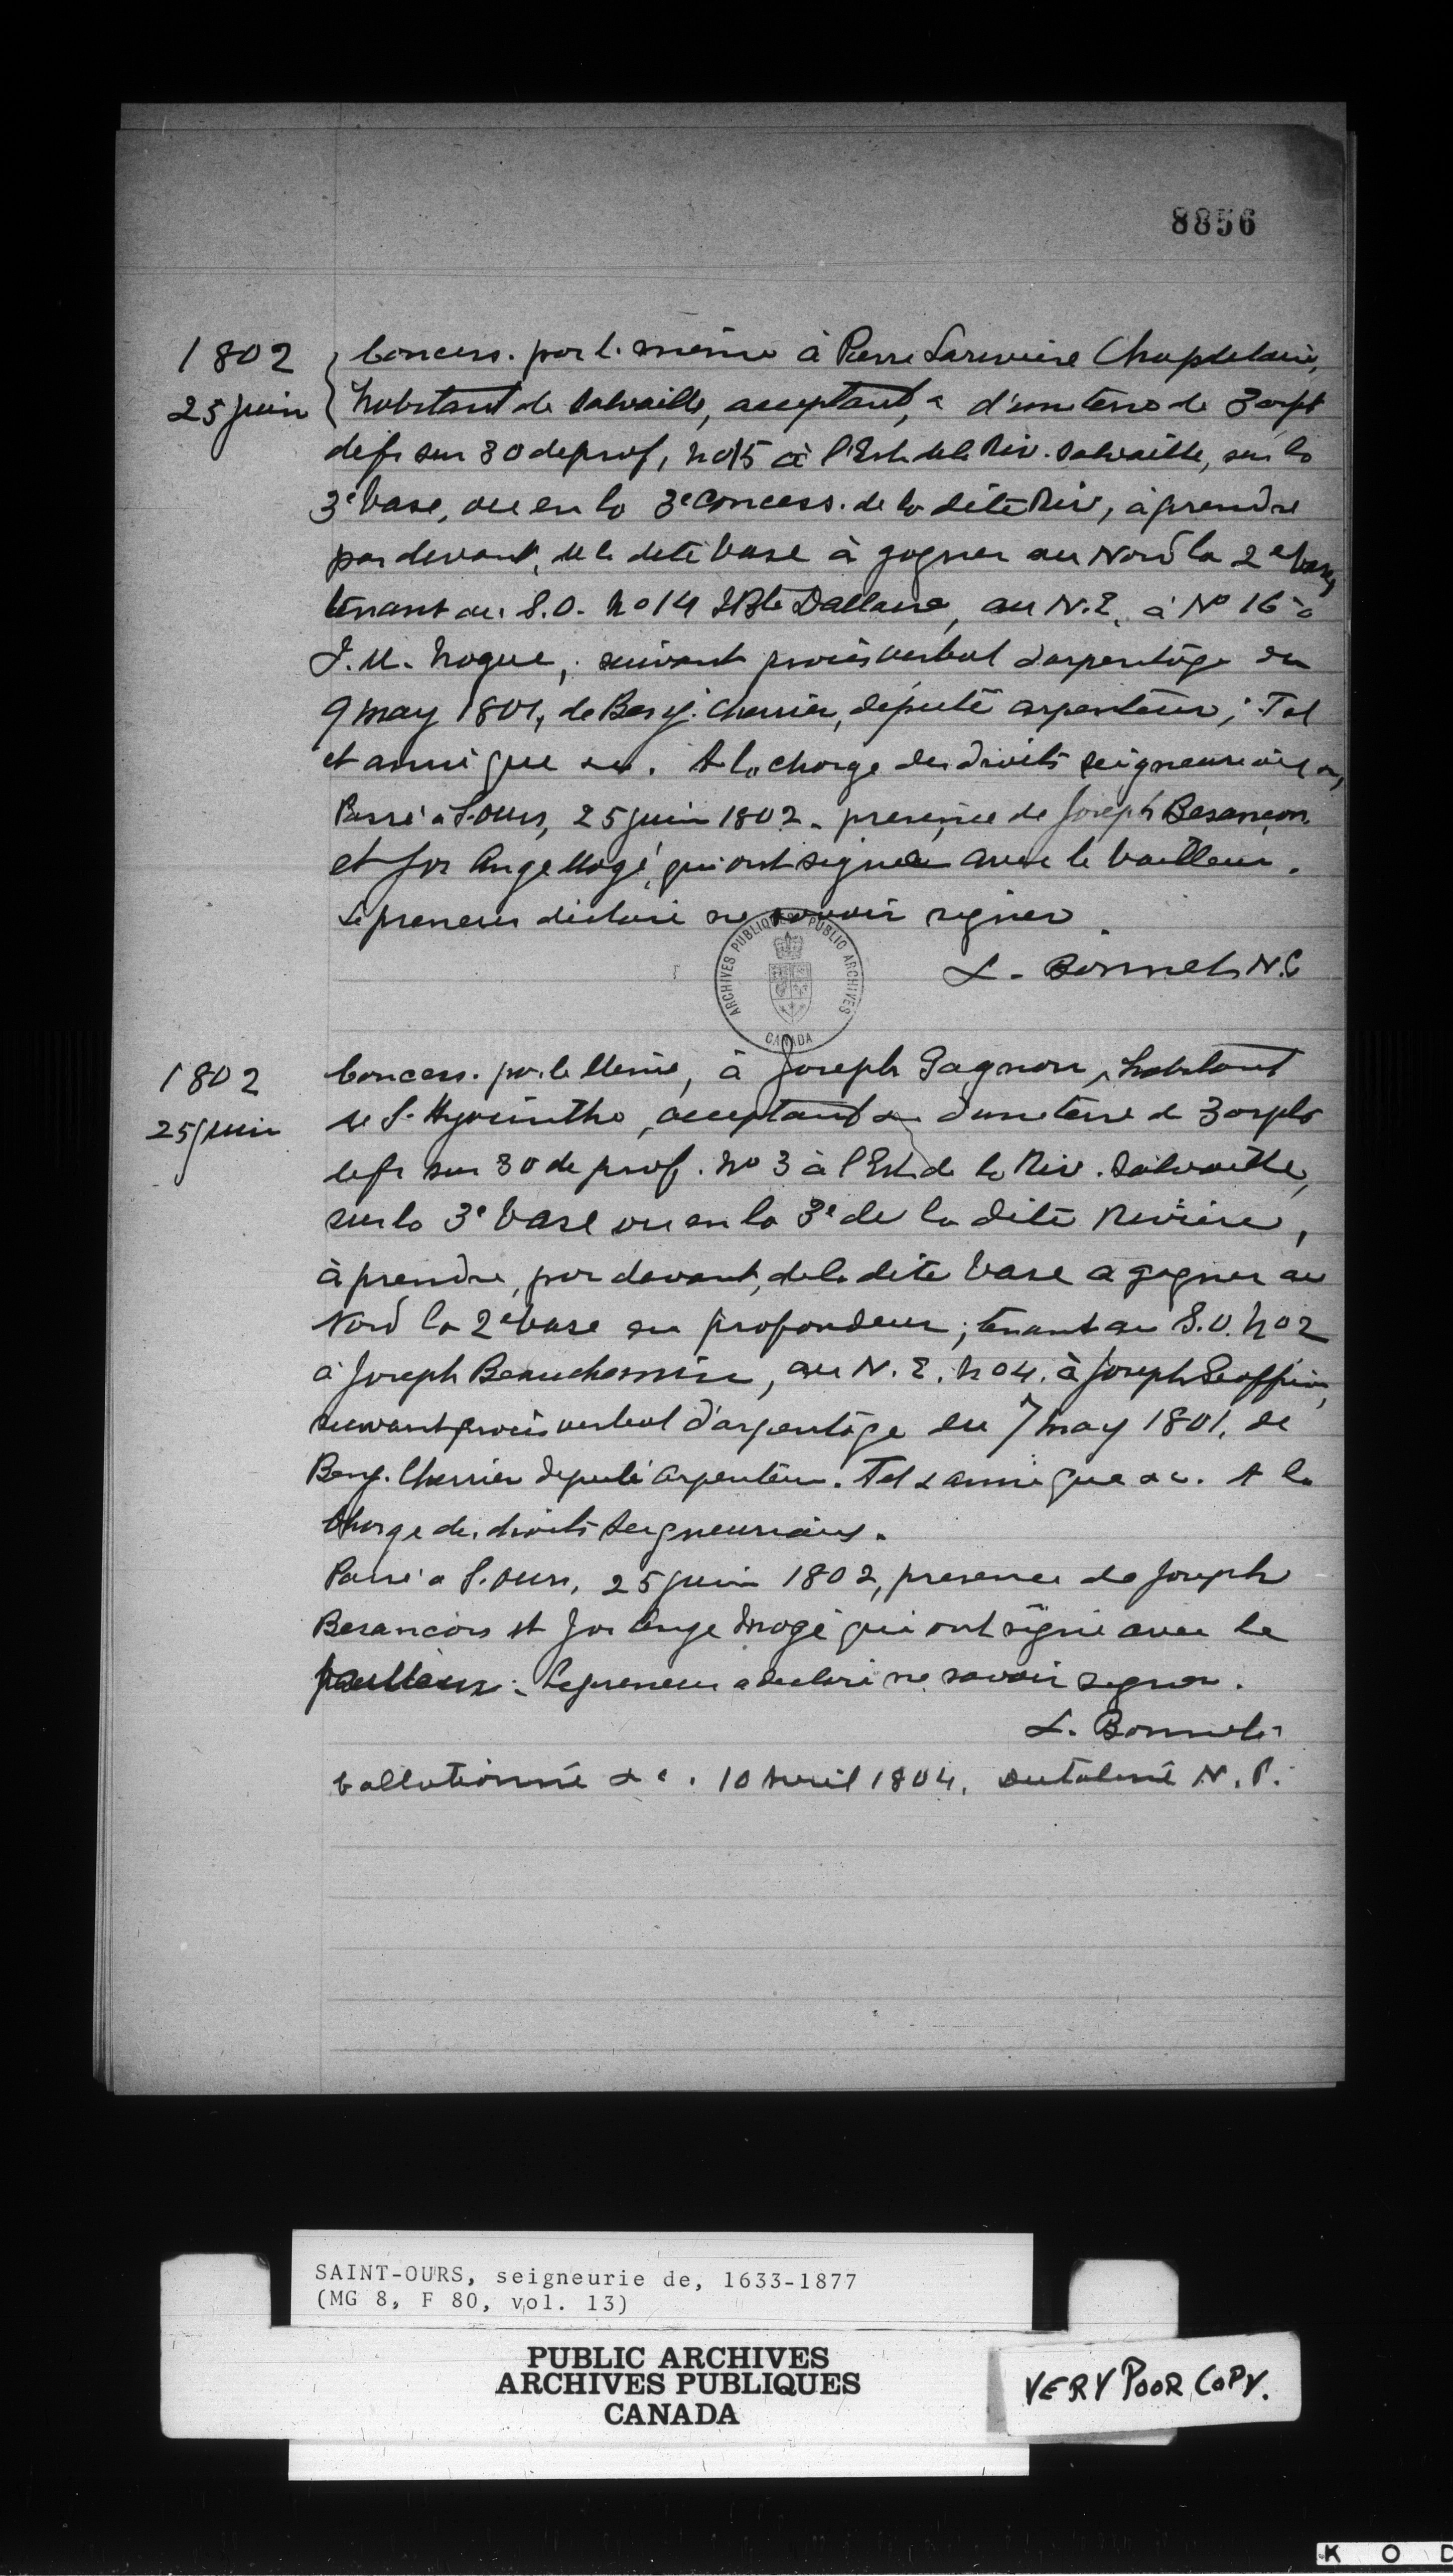 8856
1802 Concess. par le même à Pierre Lariviere Chapdelaine,
25 juin habitant de Salvaille, acceptant, &a d'une terre de 3 arpt
de fr sur 30 de prof, no 15 à l'Est de la Riv. Salvaille, sur la
3e base, ou en la 3e Concess. de la dite Riv, à prendre
par devant, de la dite base à gagner au Nord la 2e base,
tenant au S.O. No 14 J Bte Dallaire, au N.E. à No 16 à
J. M. Hogue, suivant procès verbal d'arpentage du
9 may 1801, de Benj. Cherrier, député arpenteur; Tel
et ainsi que &c. A la charge des droits seigneuriaux,
Passé a S. Ours, 25 juin 1802. presence de Joseph Besançon
et Jos Ange Mogé, qui ont signé avec le bailleur.
Le preneur déclaré ne savoir signer
L. Bonnet N.P
ARCHIVES PUBLIQUES PUBLIC ARCHIVES CANADA
1802 Concess. par le Même, à Joseph Gagnon, habitant
25 juin de S. Hyacinthe, acceptant &a d'une terre de 3 arpts
de fr sur 30 de prof. No 3 à l'Est de la Riv. Salvaille,
sur la 3e base ou en la 3e de la dite Rivière,
à prendre, par devant, de la dite base a gagner au
Nord la 2e base en profondeur; tenant au S.O. No 2
à Joseph Beauchemin, au N.E. No 4. à Joseph Geoffrion,
suivant procès verbal d'arpentage du 7 may 1801, de
Benj. Cherrier député arpenteur. Tel & ainsi que &c. A la
charge des droits Seigneuriaux.
Passé a S. Ours, 25 juin 1802, presence de Joseph
Besancon et Jos Ange Mogé qui ont signé avec le
bailleur. Le preneur a declaré ne savoir signer.
L. Bonnet
Collationné &c. 10 Avril 1804, Dutalmé N.P.
SAINT-OURS, seigneurie de, 1633-1877
(MG 8, F 80, vol. 13)
PUBLIC ARCHIVES
ARCHIVES PUBLIQUES
CANADA
VERY POOR COPY.
K O D